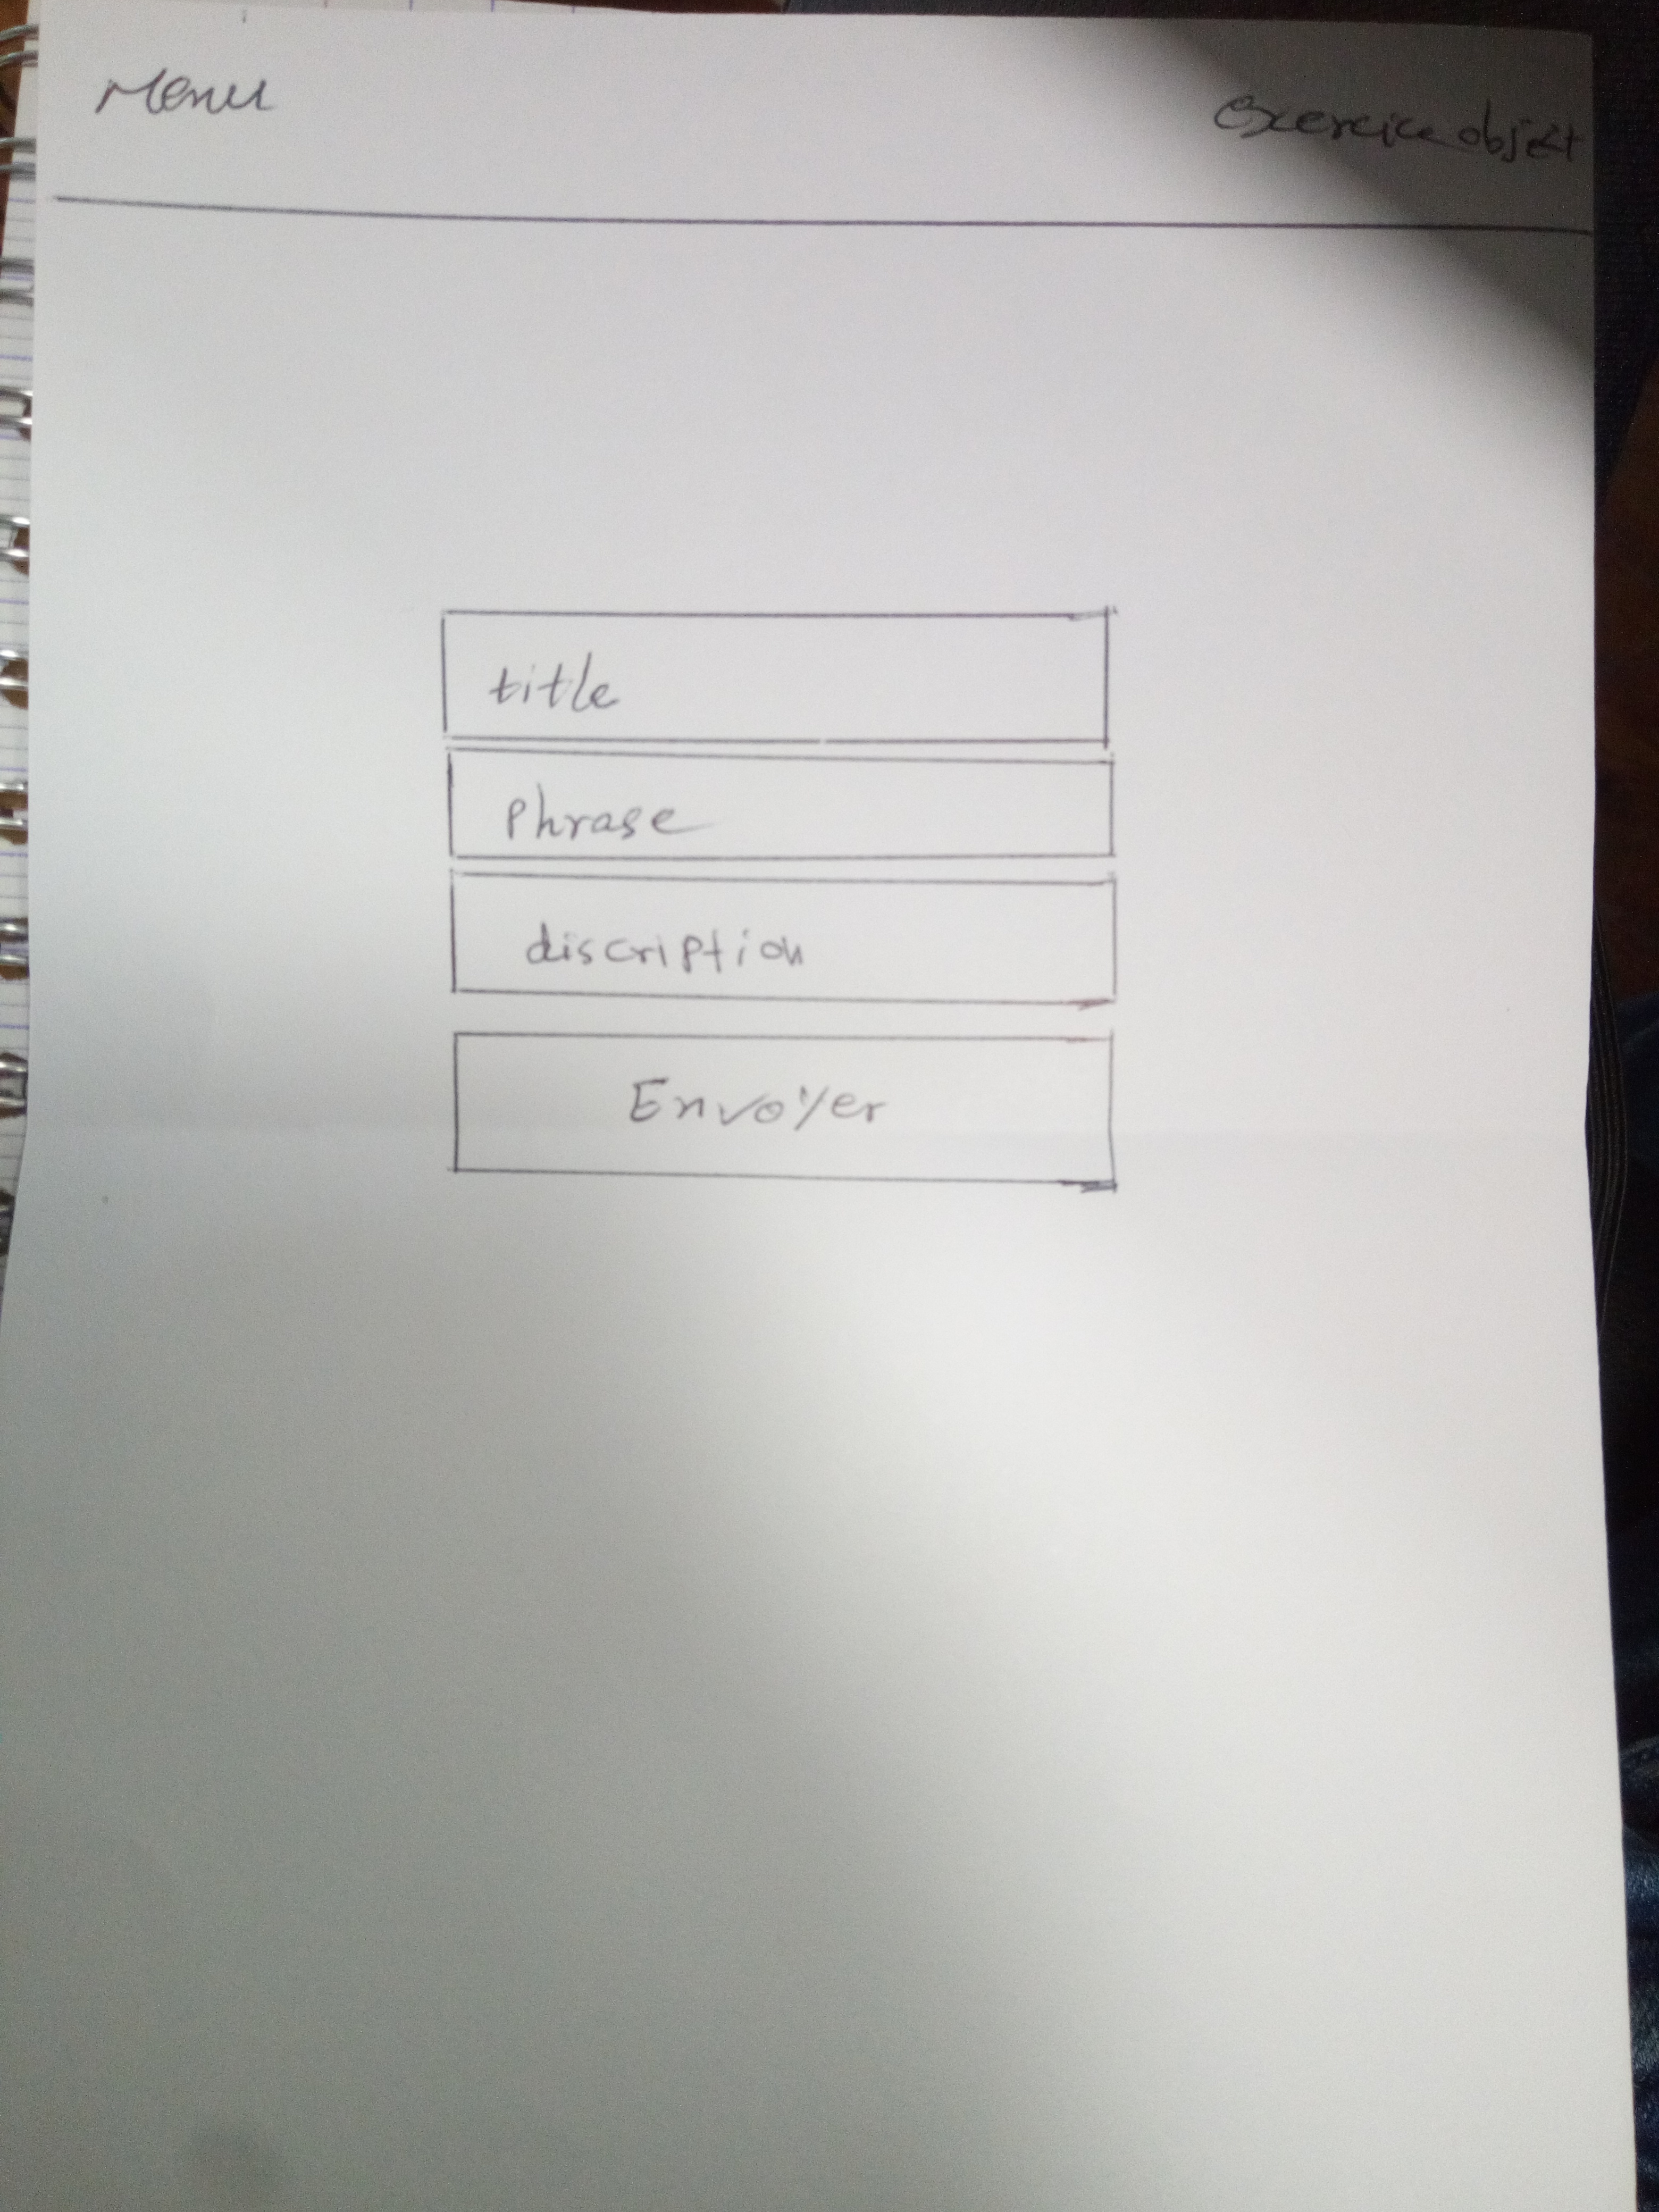 Menu
exercice objet
title
Phrase
discription
Envoyer